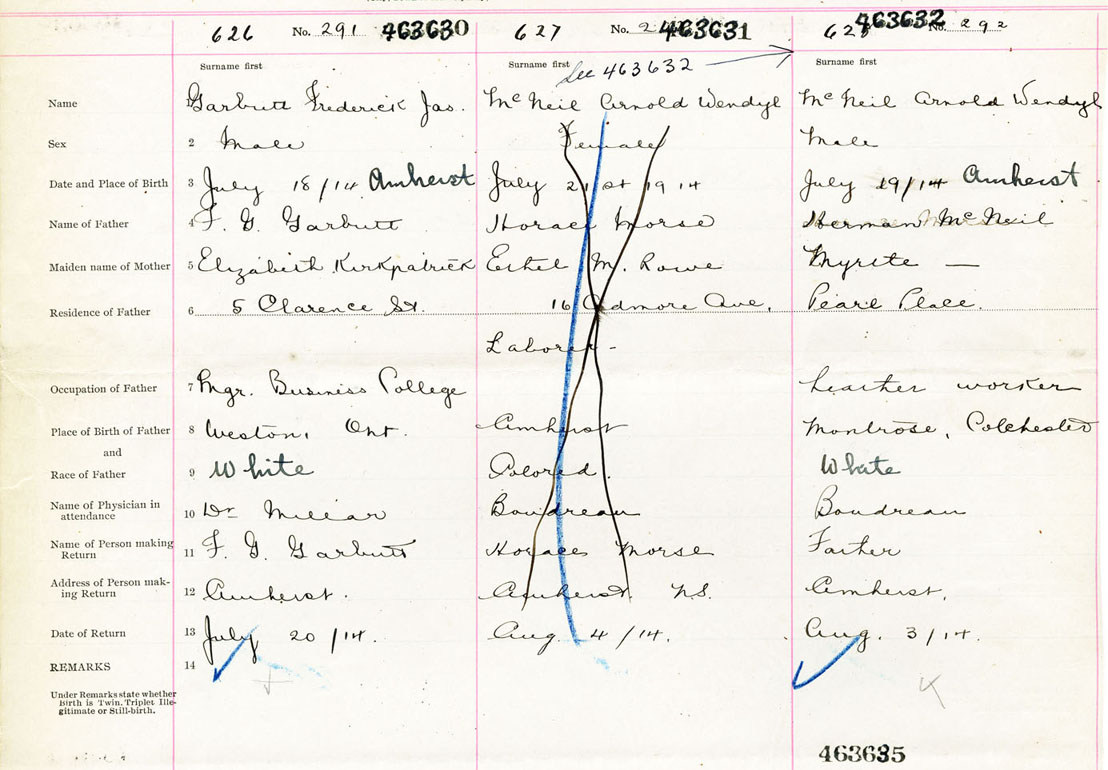 626 No. 291 463630 627 No. 2 463631 463632 No. 292
Surname first Surname first See 463632 Surname first
Name 1 Garbutt Frederick Jas. McNeil Arnold Wendyl McNeil Arnold Wendyl
Sex 2 Male Female Male
Date and Place of Birth 3 July 18/14 Amherst July 21st 1914 July 29/14 Amherst
Name of Father 4 F. G. Garbutt Horace Morse Herman McNeil
Maiden name of Mother 5 Elizabeth Kirkpatrick Ethel M. Rowe Myrtle —
Residence of Father 6 5 Clarence St. 16 Admore Ave. Pearl Place.
Laborer -
Occupation of Father 7 Mgr. Business College Leather worker
Place of Birth of Father 8 Weston, Ont. Amherst Montrose, Colchester
and
Race of Father 9 White Colored. White
Name of Physician in
attendance 10 Dr Millar Boudreau Boudreau
Name of Person making
Return 11 F. G. Garbutt Horace Morse Father
Address of Person mak-
ing Return 12 Amherst. Amherst N.S. Amherst.
Date of Return 13 July 20/14. Aug. 4/14. Aug. 3/14.
REMARKS 14
Under Remarks state whether
Birth is Twin, Triplet Ille-
gitimate or Still-birth.
463635